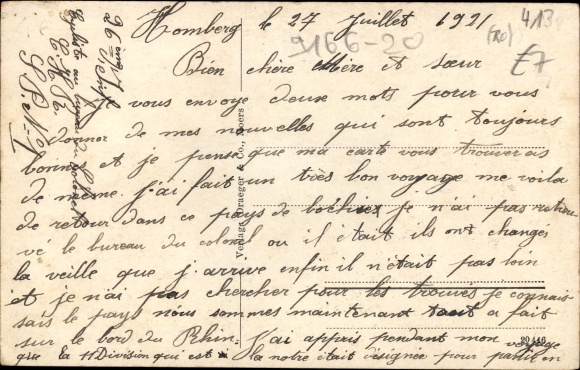 Homberg le 27 Juillet 1921
4130
9166-20
(RO)
£7
Bien chère Mère et sœur
Je vous envoye deux mots pour vous
donner de mes nouvelles qui sont toujours
bonne et je pense que ma carte vous trouvai as
de même. J'ai fait un très bon voyage me voila
de retour dans ce pays de boches je n'ai pas retrou
vé le bureau du colonel ou il était ils ont changés
la veille que j'arrive enfin il n'était pas loin
et je n'ai pas chercher pour les trouvés je connais
sais le pays nous sommes maintenant tout a fait
sur le bord du Rhin. J'ai appris pendant mon voyage
que la 11 Division qui est à la notre était désignée pour partir en
26eme
S.P. N°
Verlag: Draeger & Co.,
20446